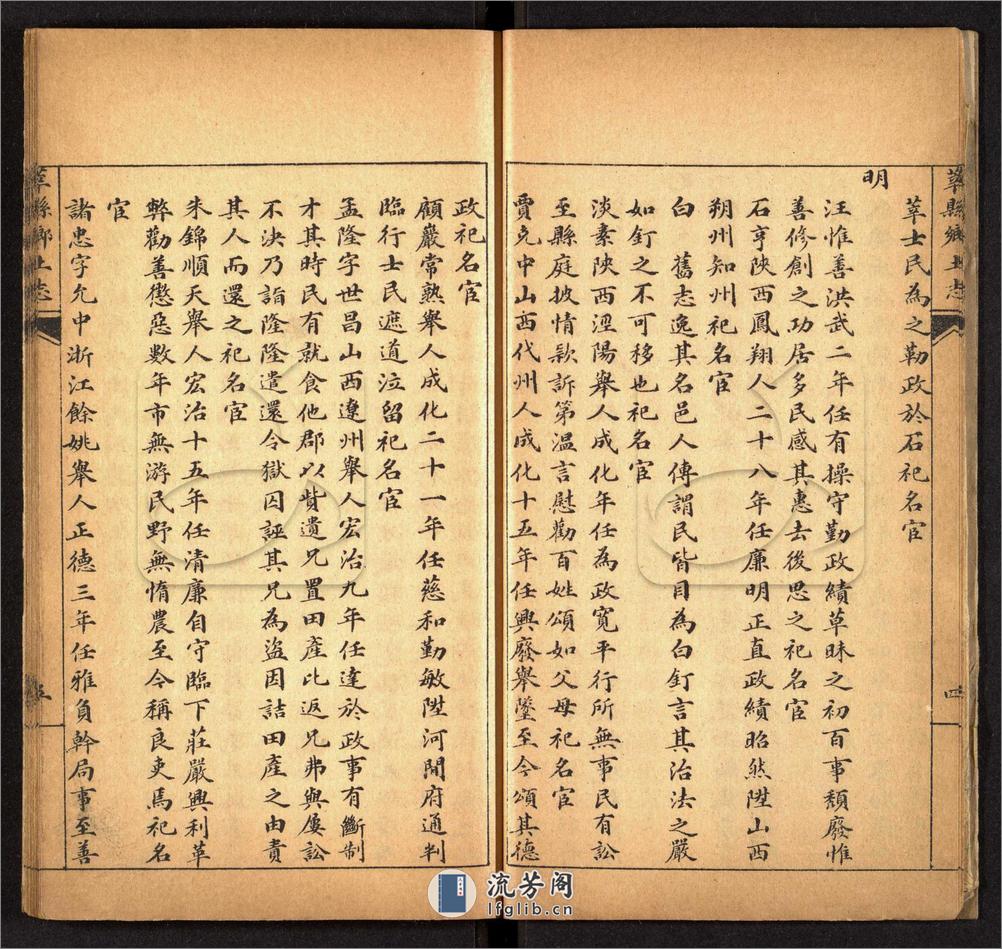 莘縣鄉土志
四
莘士民為之勒政於石祀名宦
明
汪惟善洪武二年任有操守勤政績草昧之初百事頹廢惟
善修創之功居多民感其惠去後思之祀名宦
石亨陝西鳳翔人二十八年任廉明正直政績昭然陞山西
朔州知州祀名宦
白 舊志逸其名邑人傳謂民皆目為白釘言其治法之嚴
如釘之不可移也祀名宦
淡素陝西涇陽舉人成化年任為政寬平行所無事民有訟
至縣庭披情款訴第溫言慰勸百姓頌如父母祀名宦
賈克中山西代州人成化十五年任興廢舉墜至今頌其德
政祀名宦
顧巖常熟舉人成化二十一年任慈和勤敏陞河間府通判
臨行士民遮道泣留祀名宦
孟隆字世昌山西遼州舉人宏治九年任達於政事有斷制
才其時民有就食他郡以貲遺兄置田產比返兄弗與屢訟
不決乃詣隆隆遣還令獄囚誣其兄為盜因詰田產之由責
其人而還之祀名宦
朱錦順天舉人宏治十五年任清廉自守臨下莊嚴興利革
弊勸善懲惡數年市無游民野無惰農至今稱良吏焉祀名
宦
諸忠字允中浙江餘姚舉人正德三年任雅負幹局事至善
莘縣鄉土志
五
流芳阁
lfglib.cn